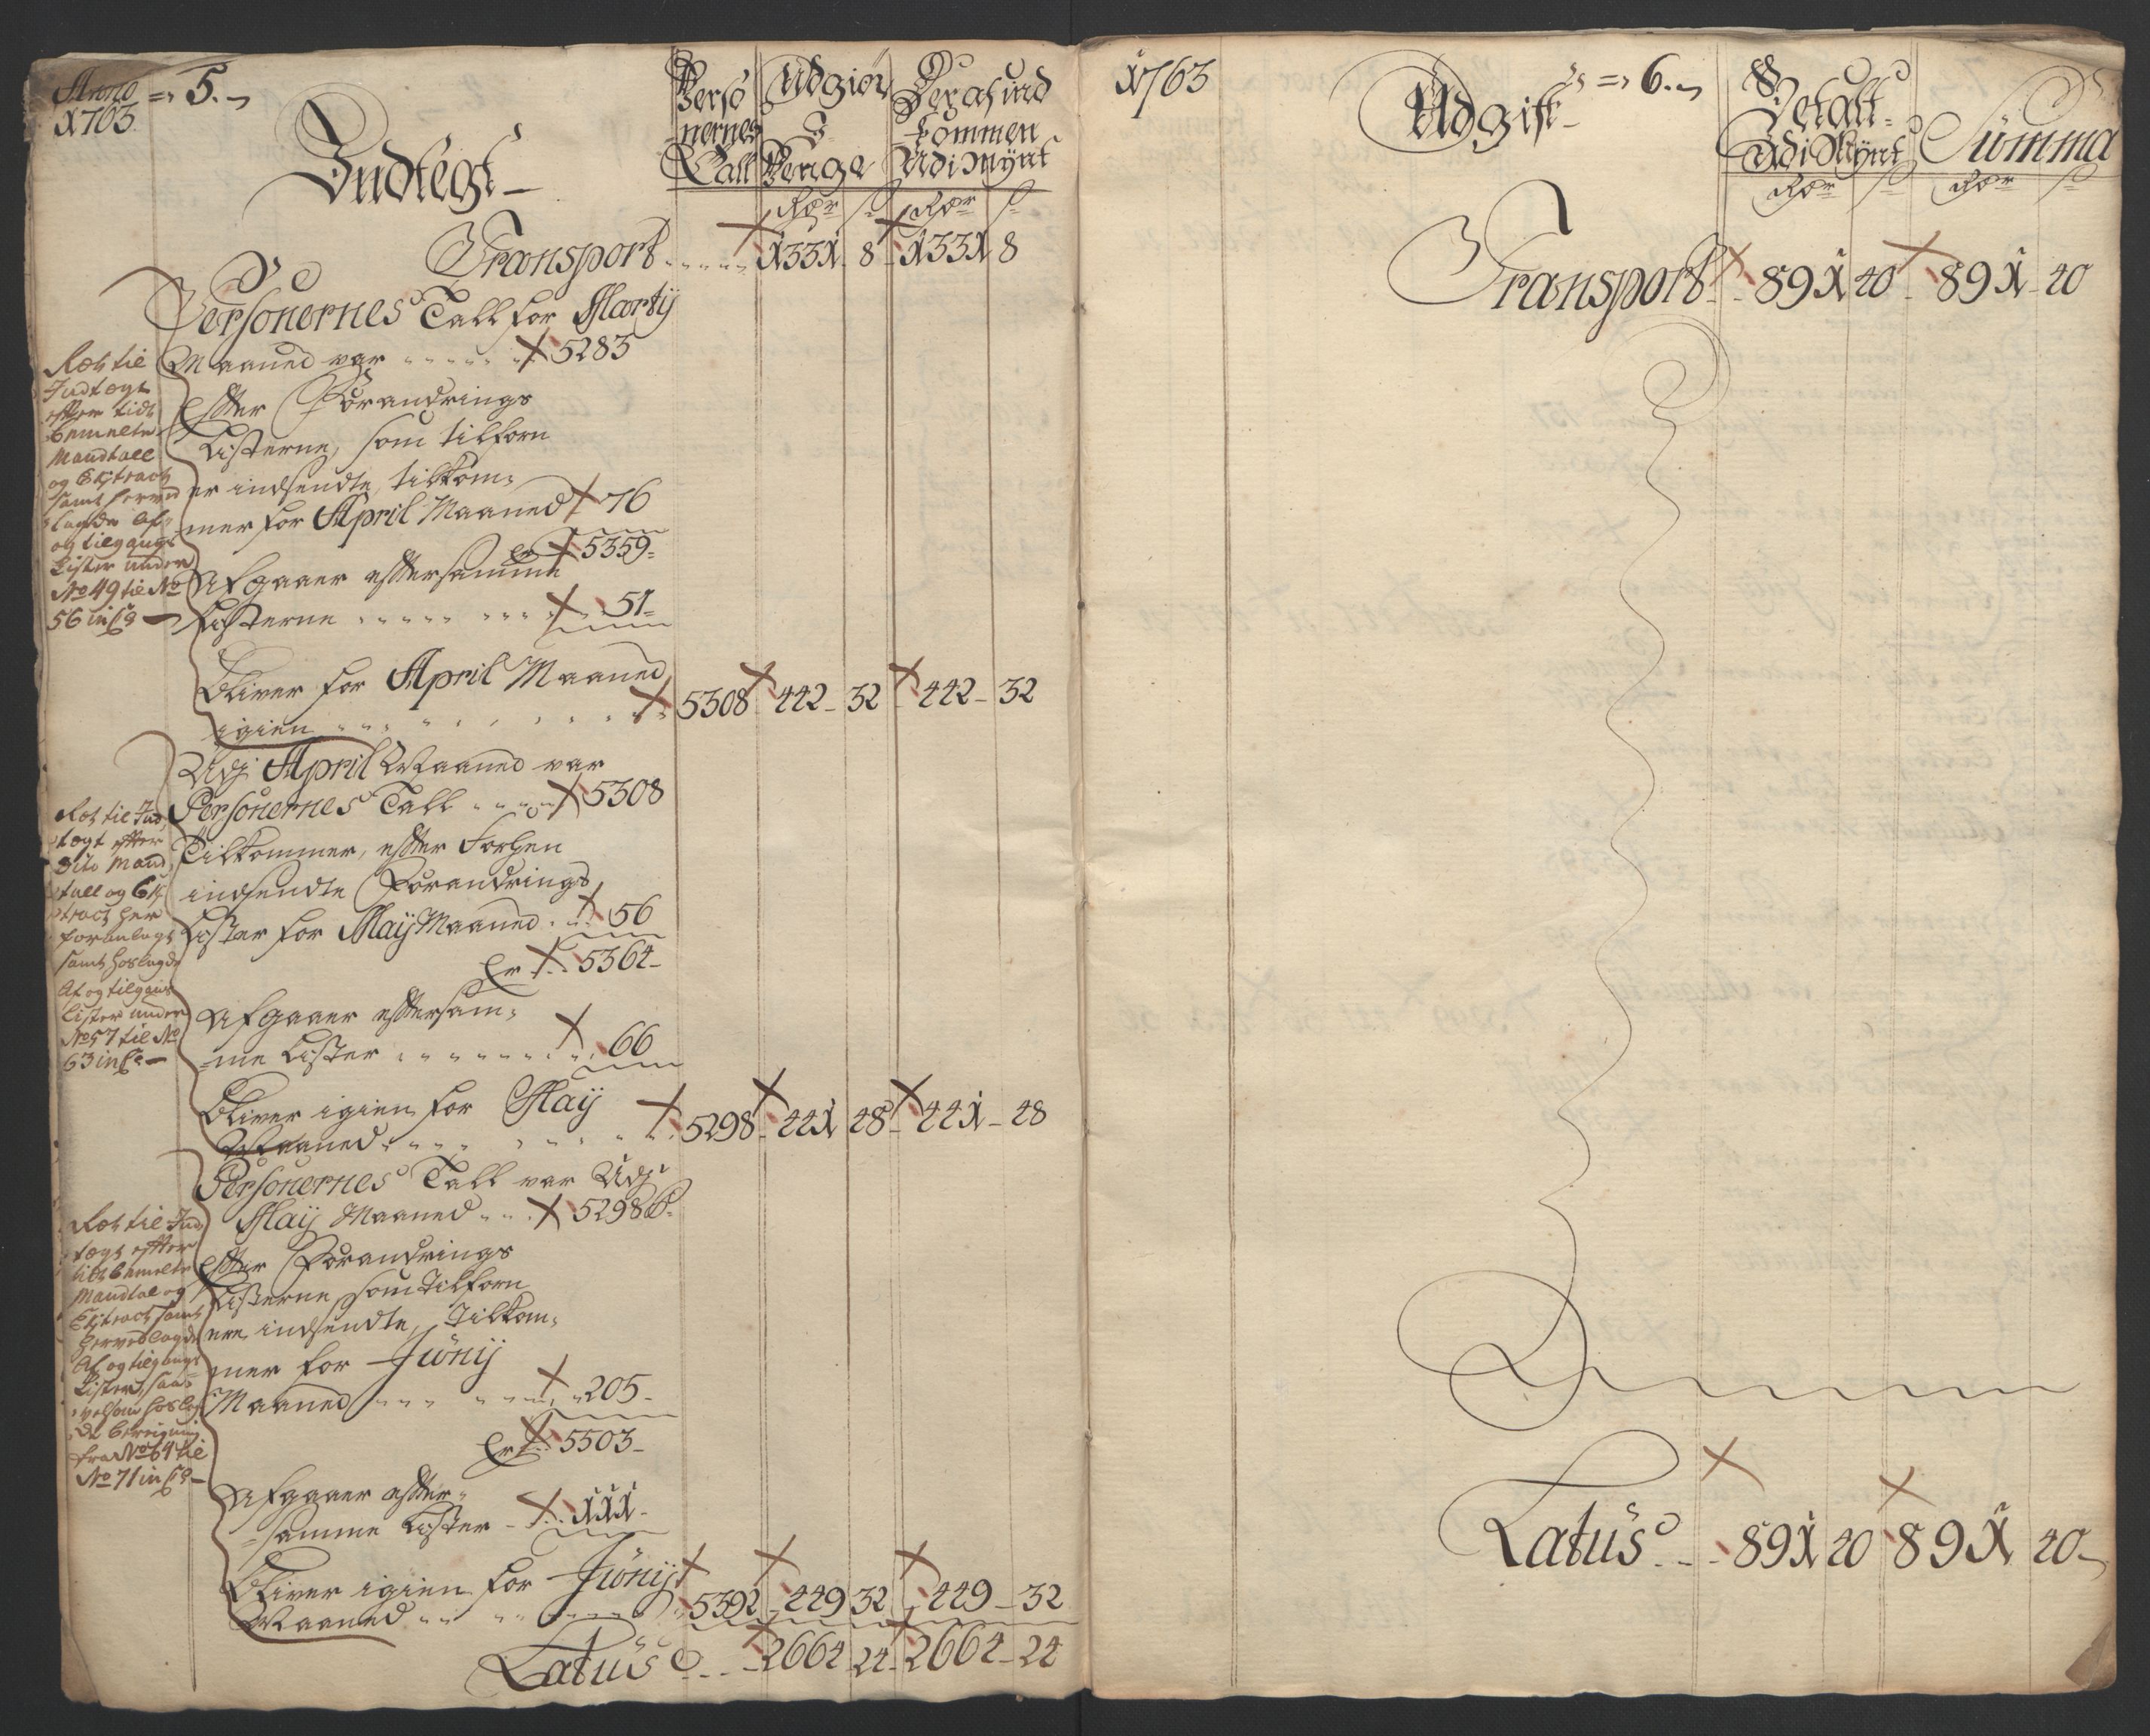 Anno 1763.
= 5.
Indtegt
Perso
nernes
Tall
Udgiör
J
Penge
Deraf ind
kommen
Udi Mÿnt
Rdr s
Rdr s
Transport 1331 8 1331 8
Personernes Tall for Martÿ
Maaned var 5283
Efter Forandrings
Listerne, som tilforn
er indsendte, tilkom-
mer for April Maaned 76
er 5359
Afgaaer efter samme
Listerne 51
Bliver for April Maaned
igien 5308 442 32 442 32
Udj April Maaned var
Personernes Tall 5308
Tilkommer, efter forhen
indsendte Forandrings
Lister for Maÿ Maaned 56
Er 5364
Afgaaer efter sam-
me Lister 66
Bliver igien for Maÿ
Maaned 5298 441 48 441 48
Personernes Tall var Udj
Maÿ Maaned 5298
Efter Forandrings
Listerne, som tilforn
ere indsendte, tilkom-
mer for Junÿ
Maaned 205
Er 5503
Afgaaer efter
samme Lister 111
Bliver igien for Junÿ
Maaned 5392 449 32 449 32
Latus 2664 24 2664 24
Ret til
Indtægt
efter tidt
bemelte
Mandtall
og Extract
samt herved
lagde Af-
og tilgangs
Lister under
No 49 til No
56 incl.
Ret til Ind
tægt efter
Dito Mand
tall og Ex
tract her
foranlagt
samt hoslagde
Af og tilgangs
Lister under
No 57 til No
63 incl.
Ret til Ind
tægt efter
tidt bemelte
Mandtal og
Extract samt
hervedlagde
Af og tilgangs
Lister, saa
velsom hoslag
de
fra No 64 til
No 71 incl.
1763
= 6.
Udgift
Betalt
Udi Mÿnt
Summa
Rdr s
Rdr s
Transport 891 40 891 40
Latus 891 40 891 40